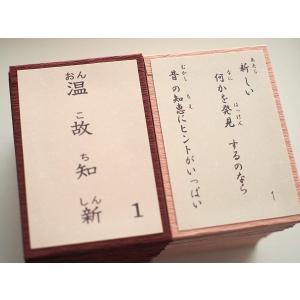 温故知新
おんこちしん
1
新しい
あたら
何かを発見 するのなら
なに はっけん
昔の知恵にヒントがいっぱい
むかし ちえ
1